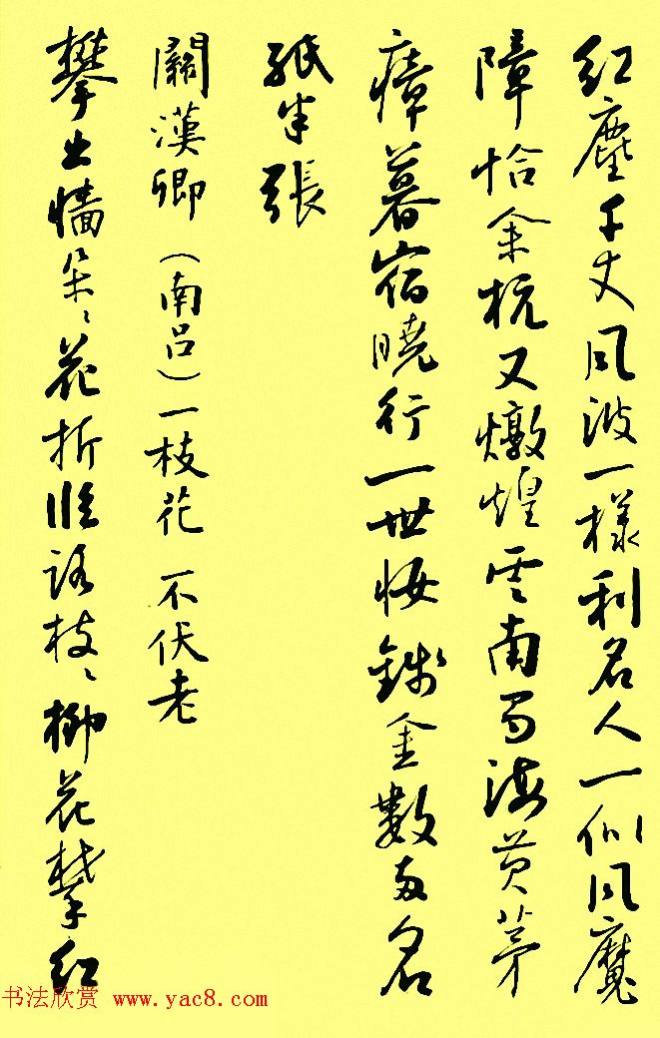 紅塵千丈風波一樣利名人一似風魔
障恰余杭又燉煌雲南蜀海黄茅
瘴暮宿曉行一世妆錢金數两名
紙半張
關漢卿（南吕）一枝花 不伏老
攀出墻朵々花折臨路枝々柳花攀紅
书法欣赏 www.yac8.com